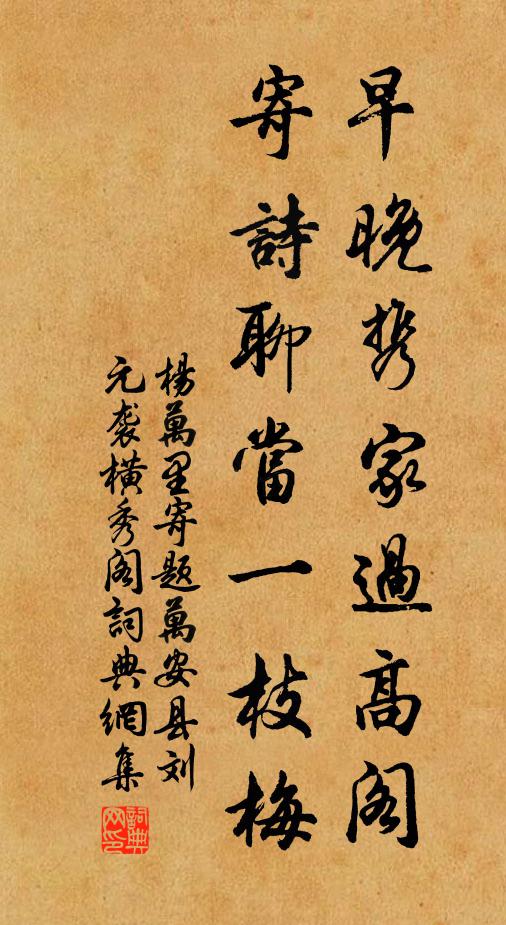 早晚携家過高阁
寄詩聊當一枝梅
楊萬里寄题萬安县刘
元袭横秀阁詞典網集
詞典
网印